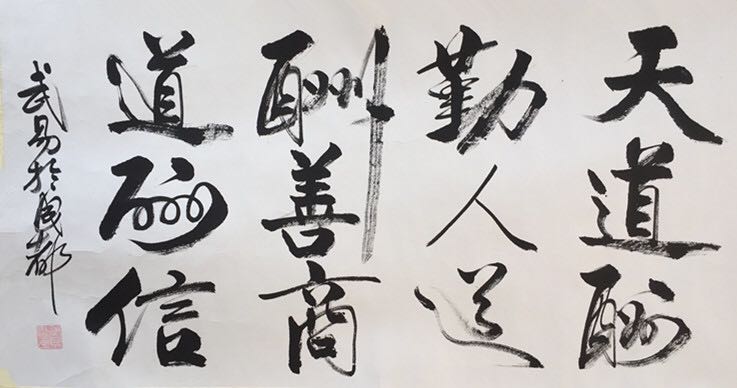 天道酬
勤人道
酬善商
道酬信
武易於成都